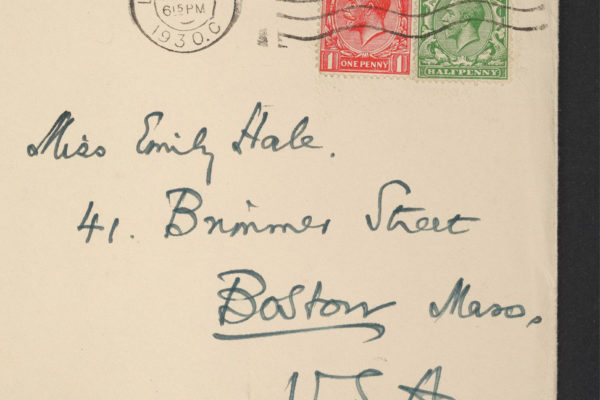 6 15 PM
1930.C
1 ONE PENNY 1
HALFPENNY
Miss Emily Hale.
41. Brimmer Street
Boston Mass.
U S A